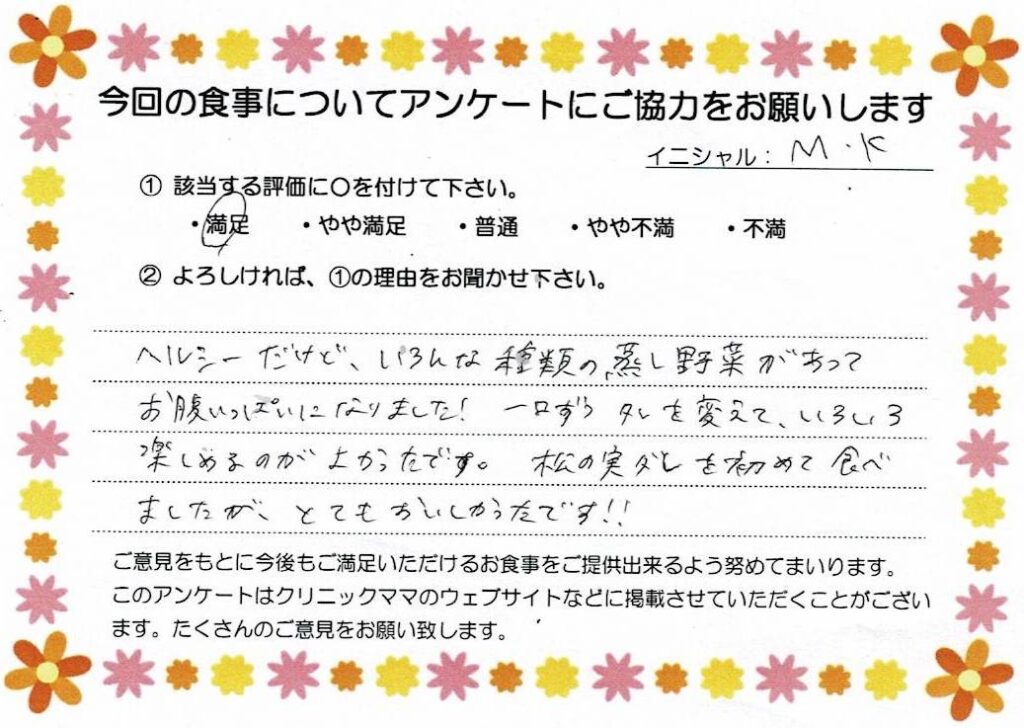 今回の食事についてアンケートにご協力をお願いします
イニシャル： M・K
① 該当する評価に〇を付けて下さい。
・満足 ・やや満足 ・普通 ・やや不満 ・不満
② よろしければ、①の理由をお聞かせ下さい。
ヘルシーだけど、いろんな種類の蒸し野菜があって
お腹いっぱいになりました！ 一口ずつ タレを変えて、いろいろ
楽しめるのがよかったです。 松の実ダレを初めて食べ
ましたが、とてもおいしかったです!!
ご意見をもとに今後もご満足いただけるお食事をご提供出来るよう努めてまいります。
このアンケートはクリニックママのウェブサイトなどに掲載させていただくことがござい
ます。たくさんのご意見をお願い致します。